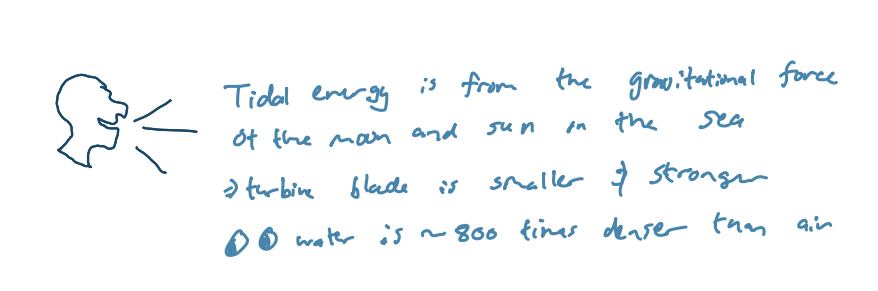 Tidal energy is from the gravitational force
of the moon and sun on the sea
⇒ turbine blade is smaller & stronger
water is ~800 times denser than air